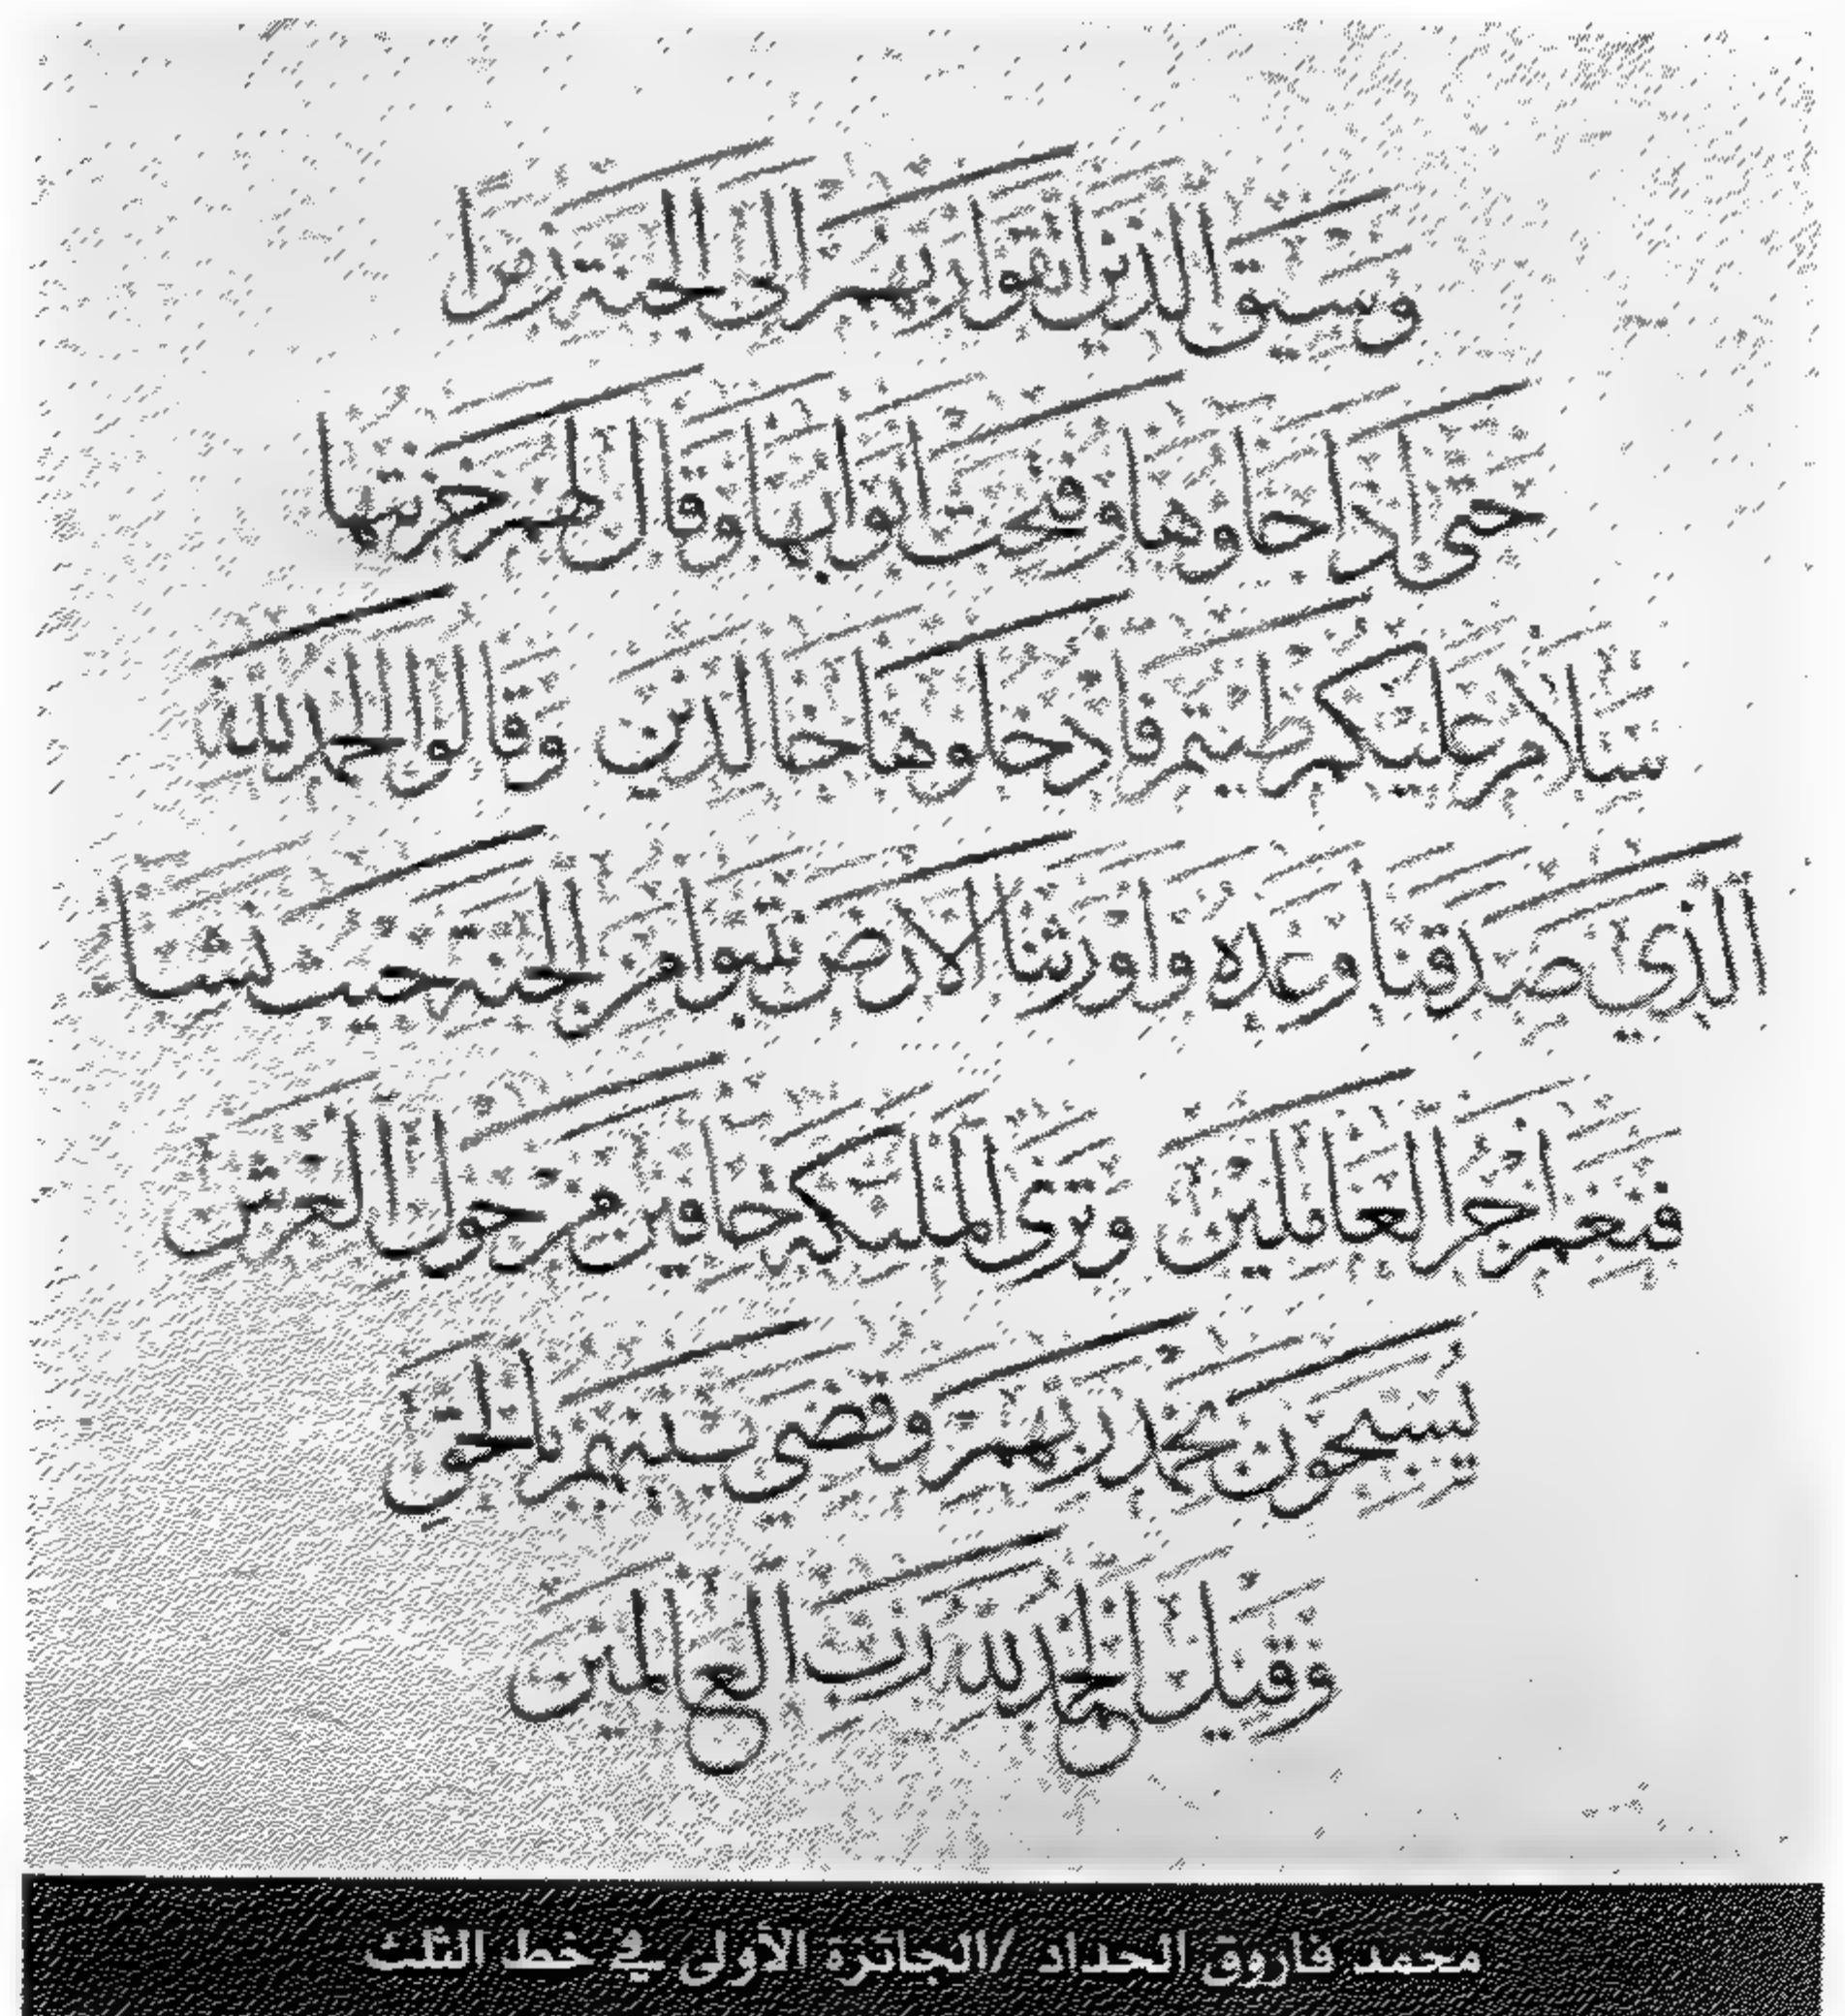 وسيق الذين اتقوا ربهم الى الجنة زمرا
حتى اذا جاؤها وفتحت ابوابها وقال لهم خزنتها
سلام عليكم طبتم فادخلوها خالدين وقالوا الحمد لله
الذي صدقنا وعده واورثنا الارض نتبوا من الجنة حيث نشاء
فنعم اجر العاملين وترى الملئكة حافين من حول العرش
يسبحون بحمد ربهم وقضي بينهم بالحق
وقيل الحمد لله رب العالمين
محمد فاروق الحداد /الجائزة الأولى في خط الثلث